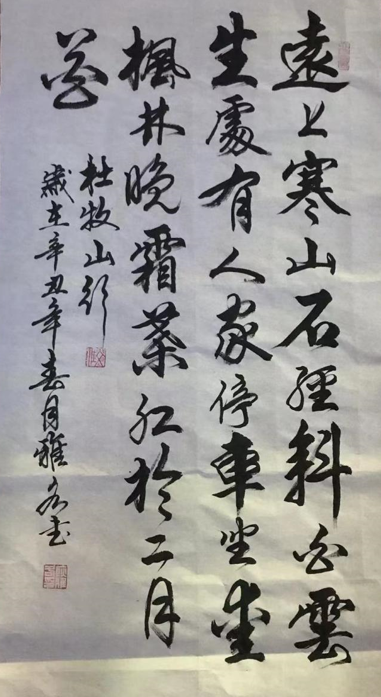 遠上寒山石徑斜白雲
生處有人家停車坐愛
楓林晚霜葉紅於二月
花
杜牧山行
歲在辛丑年春月雅名書